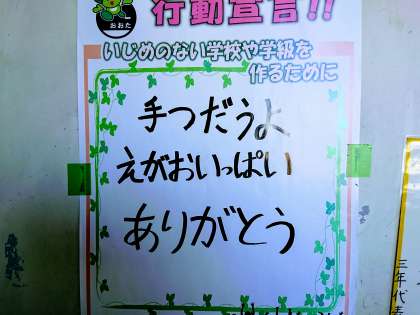 行動宣言!!
おおた
いじめのない学校や学級を
作るために
手つだうよ
えがおいっぱい
ありがとう
三年代表